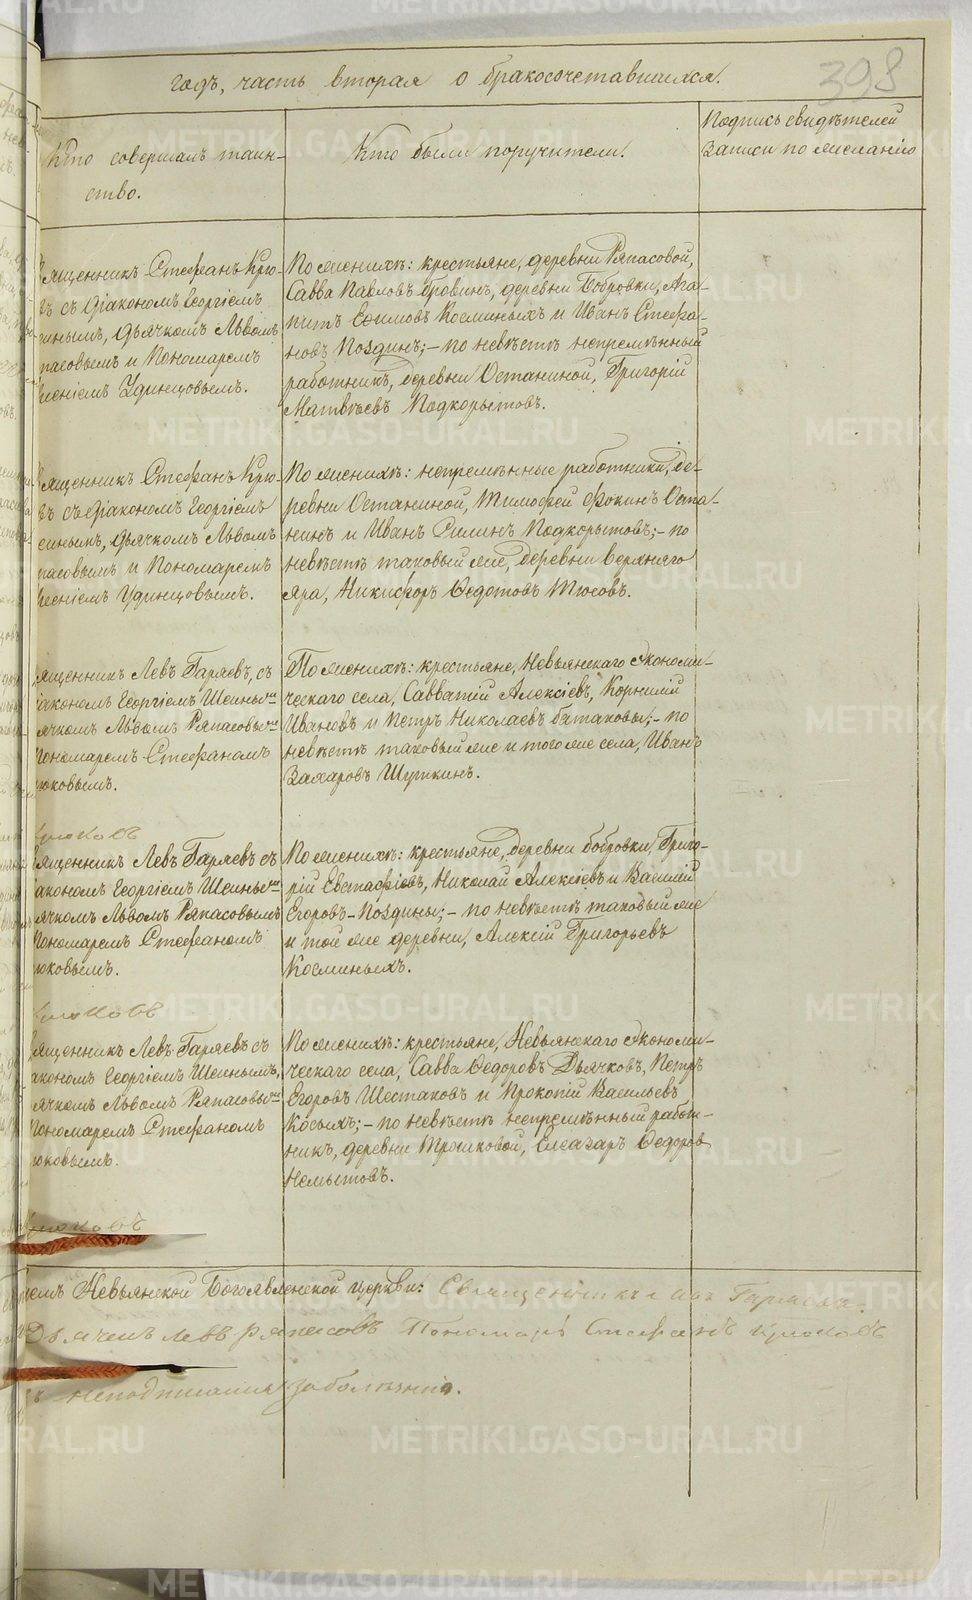 398
годъ, часть вторая о бракосочетавшихся.
Кто совершалъ таин-
ство.
Кто были поручители.
Подпись свидѣтелей
записи по желанію
ященникъ Стефанъ Крю-
въ съ діакономъ Георгіемъ
инымъ, дьячкомъ Львомъ
пасовымъ и Пономаремъ
сеніемъ Удинцовымъ.
По женихѣ: крестьяне, деревни Ряпасовой,
Савва Павловъ деревни Бобровки, Ага-
питъ Ефимовъ Косминыхъ и Иванъ Стефа-
новъ Поздинъ;- по невѣстѣ непремѣнный
работникъ, деревни Останиной, Григорій
Матвѣевъ Подкорытовъ.
ященникъ Стефанъ Крю-
въ съ діакономъ Георгіемъ
инымъ, дьячкомъ Львомъ
пасовымъ и Пономаремъ
сеніемъ Удинцовымъ.
По женихѣ: непремѣнные работники, де-
ревни Останиной, Тимофей Фокинъ Оста-
нинъ и Иванъ Подкорытовъ;- по
невѣстѣ таковый же, деревни Верхняго
Яра, Никифоръ Ѳедотовъ Тюсовъ.
ященникъ Левъ Гаряевъ, съ
іакономъ Георгіемъ
ячкомъ Львомъ Ряпасовымъ
Пономаремъ Стефаномъ
юковымъ.
По женихѣ: крестьяне, Невьянскаго Экономи-
ческаго села, Савватій Алексіевъ, Корнилій
Ивановъ и Петръ Николаевъ Батаковы;- по
невѣстѣ таковый же и того же села, Иванъ
Захаровъ Шуткинъ.
ященникъ Левъ Гаряевъ съ
акономъ Георгіемъ
ячкомъ Львомъ Ряпасовымъ
Пономаремъ Стефаномъ
юковымъ.
По женихѣ: крестьяне, деревни Бобровки, Григо-
рій Евстафіевъ, Николай Алексіевъ и Василій
Егоровъ Поздины;- по невѣстѣ таковый же
и той же деревни, Алексій Григорьевъ
Косминыхъ.
ященникъ Левъ Гаряевъ съ
акономъ Георгіемъ
ячкомъ Львомъ Ряпасовымъ
Пономаремъ Стефаномъ
юковымъ.
По женихѣ: крестьяне, Невьянскаго Экономи-
ческаго села, Савва Ѳедоровъ Дьячковъ, Петръ
Егоровъ Шестаковъ и Прокопій Васильевъ
Косыхъ;- по невѣстѣ непремѣнный работ-
никъ, деревни Трошковой, Елеазаръ Ѳедоровъ
Немытовъ.
Невьянской Богоявленской церкви: Священникъ Левъ Гаряевъ.
Дьячекъ Левъ Ряпасовъ Пономарь Стефанъ Крюковъ
METRIKI.GASO-URAL.RU